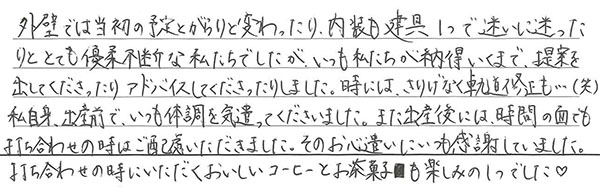 外壁では当初の予定とがらりと変わったり、内装も建具1つで迷いに迷った
りととても優柔不断な私たちでしたが、いつも私たちが納得いくまで、提案を
出してくださったりアドバイスしてくださったりしました。時には、さりげなく軌道修正も…(笑)
私自身、出産前で、いつも体調を気遣ってくださいました。また出産後には、時間の面でも
打ち合わせの時はご配慮いただきました。そのお心遣いにいつも感謝していました。
打ち合わせの時にいただくおいしいコーヒーとお茶菓子も楽しみの1つでした♡